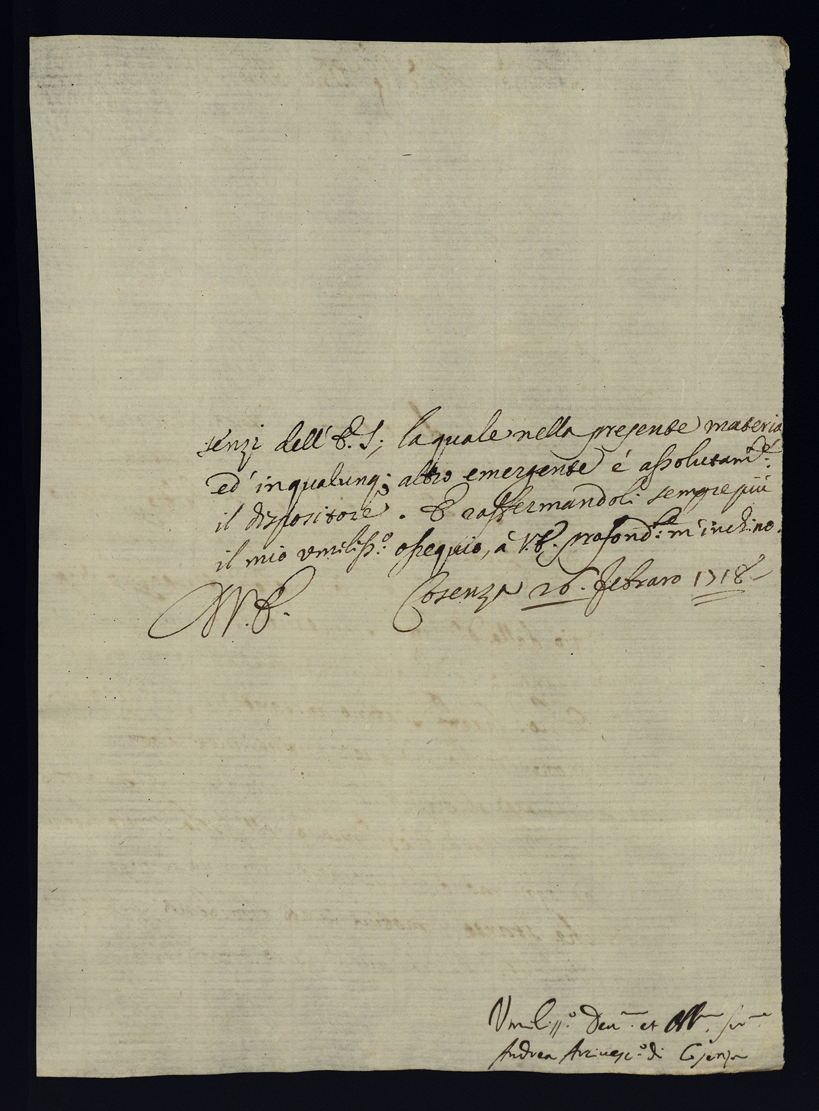 senzi dell' E. S; la quale nella presente materia
ed' in qualunq; altro emergente é assolutamte.
il dispositore. E raffermandoli sempre piú
il mio vmiliss.o ossequio, à V.E. profond.te m'inchino.
Cosenza 26. Febraro 1718
V.E.
Vmiliss.o Deu.mo et Obb.mo ser.re
Andrea Arciuesc.o di Cosenza